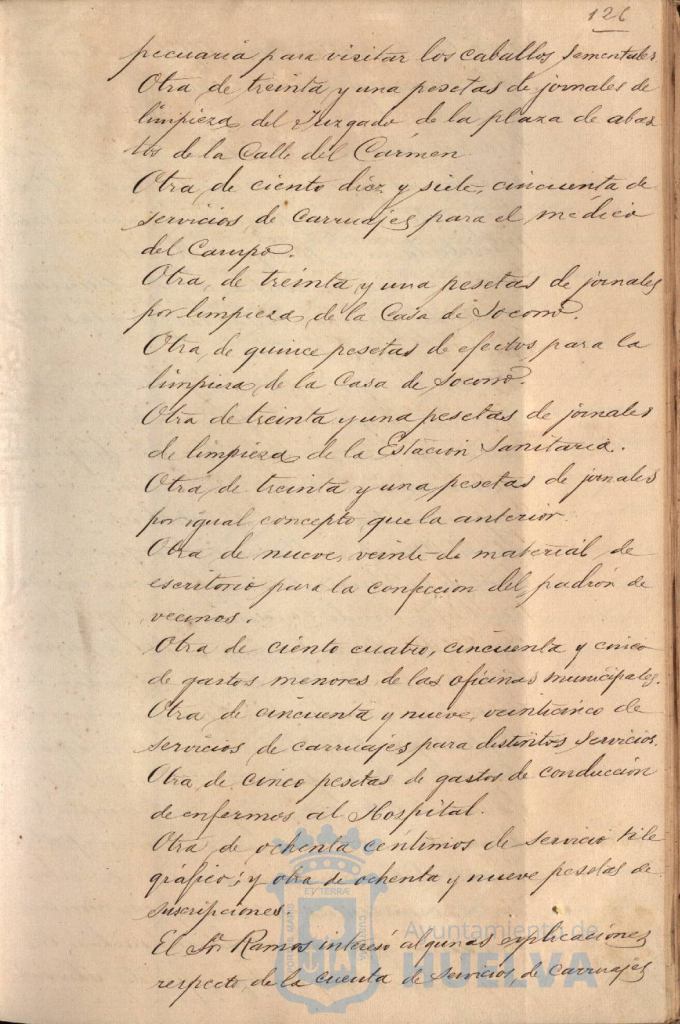 126
pecuaria para visitar los caballos sementales
Otra de treinta y una pesetas de jornales de
limpieza del Juzgado de la plaza de abas
tos de la Calle del Carmen
Otra de ciento diez y siete, cincuenta de
servicios de carruajes para el médico
del Campo.
Otra de treinta y una pesetas de jornales
por limpieza de la Casa de Socorro.
Otra de quince pesetas de efectos para la
limpieza de la Casa de Socorro.
Otra de treinta y una pesetas de jornales
de limpieza de la Estación Sanitaria.
Otra de treinta y una pesetas de jornales
por igual concepto que la anterior.
Otra de nueve, veinte de material de
escritorio para la confeccion del padrón de
vecinos.
Otra de ciento cuatro, cincuenta y cinco
de gastos menores de las oficinas municipales.
Otra de cincuenta y nueve, veinticinco de
servicios de carruajes para distintos servicios.
Otra de cinco pesetas de gastos de conducción
de enfermos al Hospital.
Otra de ochenta centimos de servicio tele
gráfico; y otra de ochenta y nueve pesetas de
suscripciones.
El Sr. Ramos interesó algunas explicaciones
respecto de la cuenta de servicios de carruajes
Ayuntamiento de
HUELVA